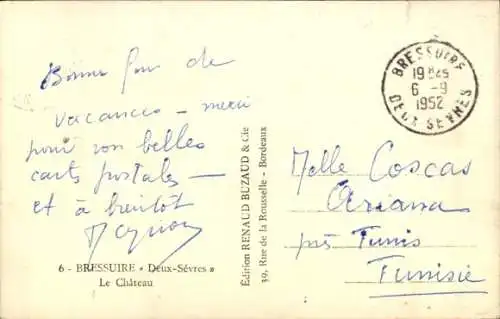 Bonne fin de
vacances – merci
pour vos belles
carts postales –
et à bientôt
6 - BRESSUIRE « Deux-Sèvres »
Le Château
Édition RENAUD BUZAUD & Cie
39, Rue de la Rousselle - Bordeaux
BRESSUIRE
19H45
6 -9
1952
DEUX SEVRES
Melle Coscas
Ariana
près Tunis
Tunisie